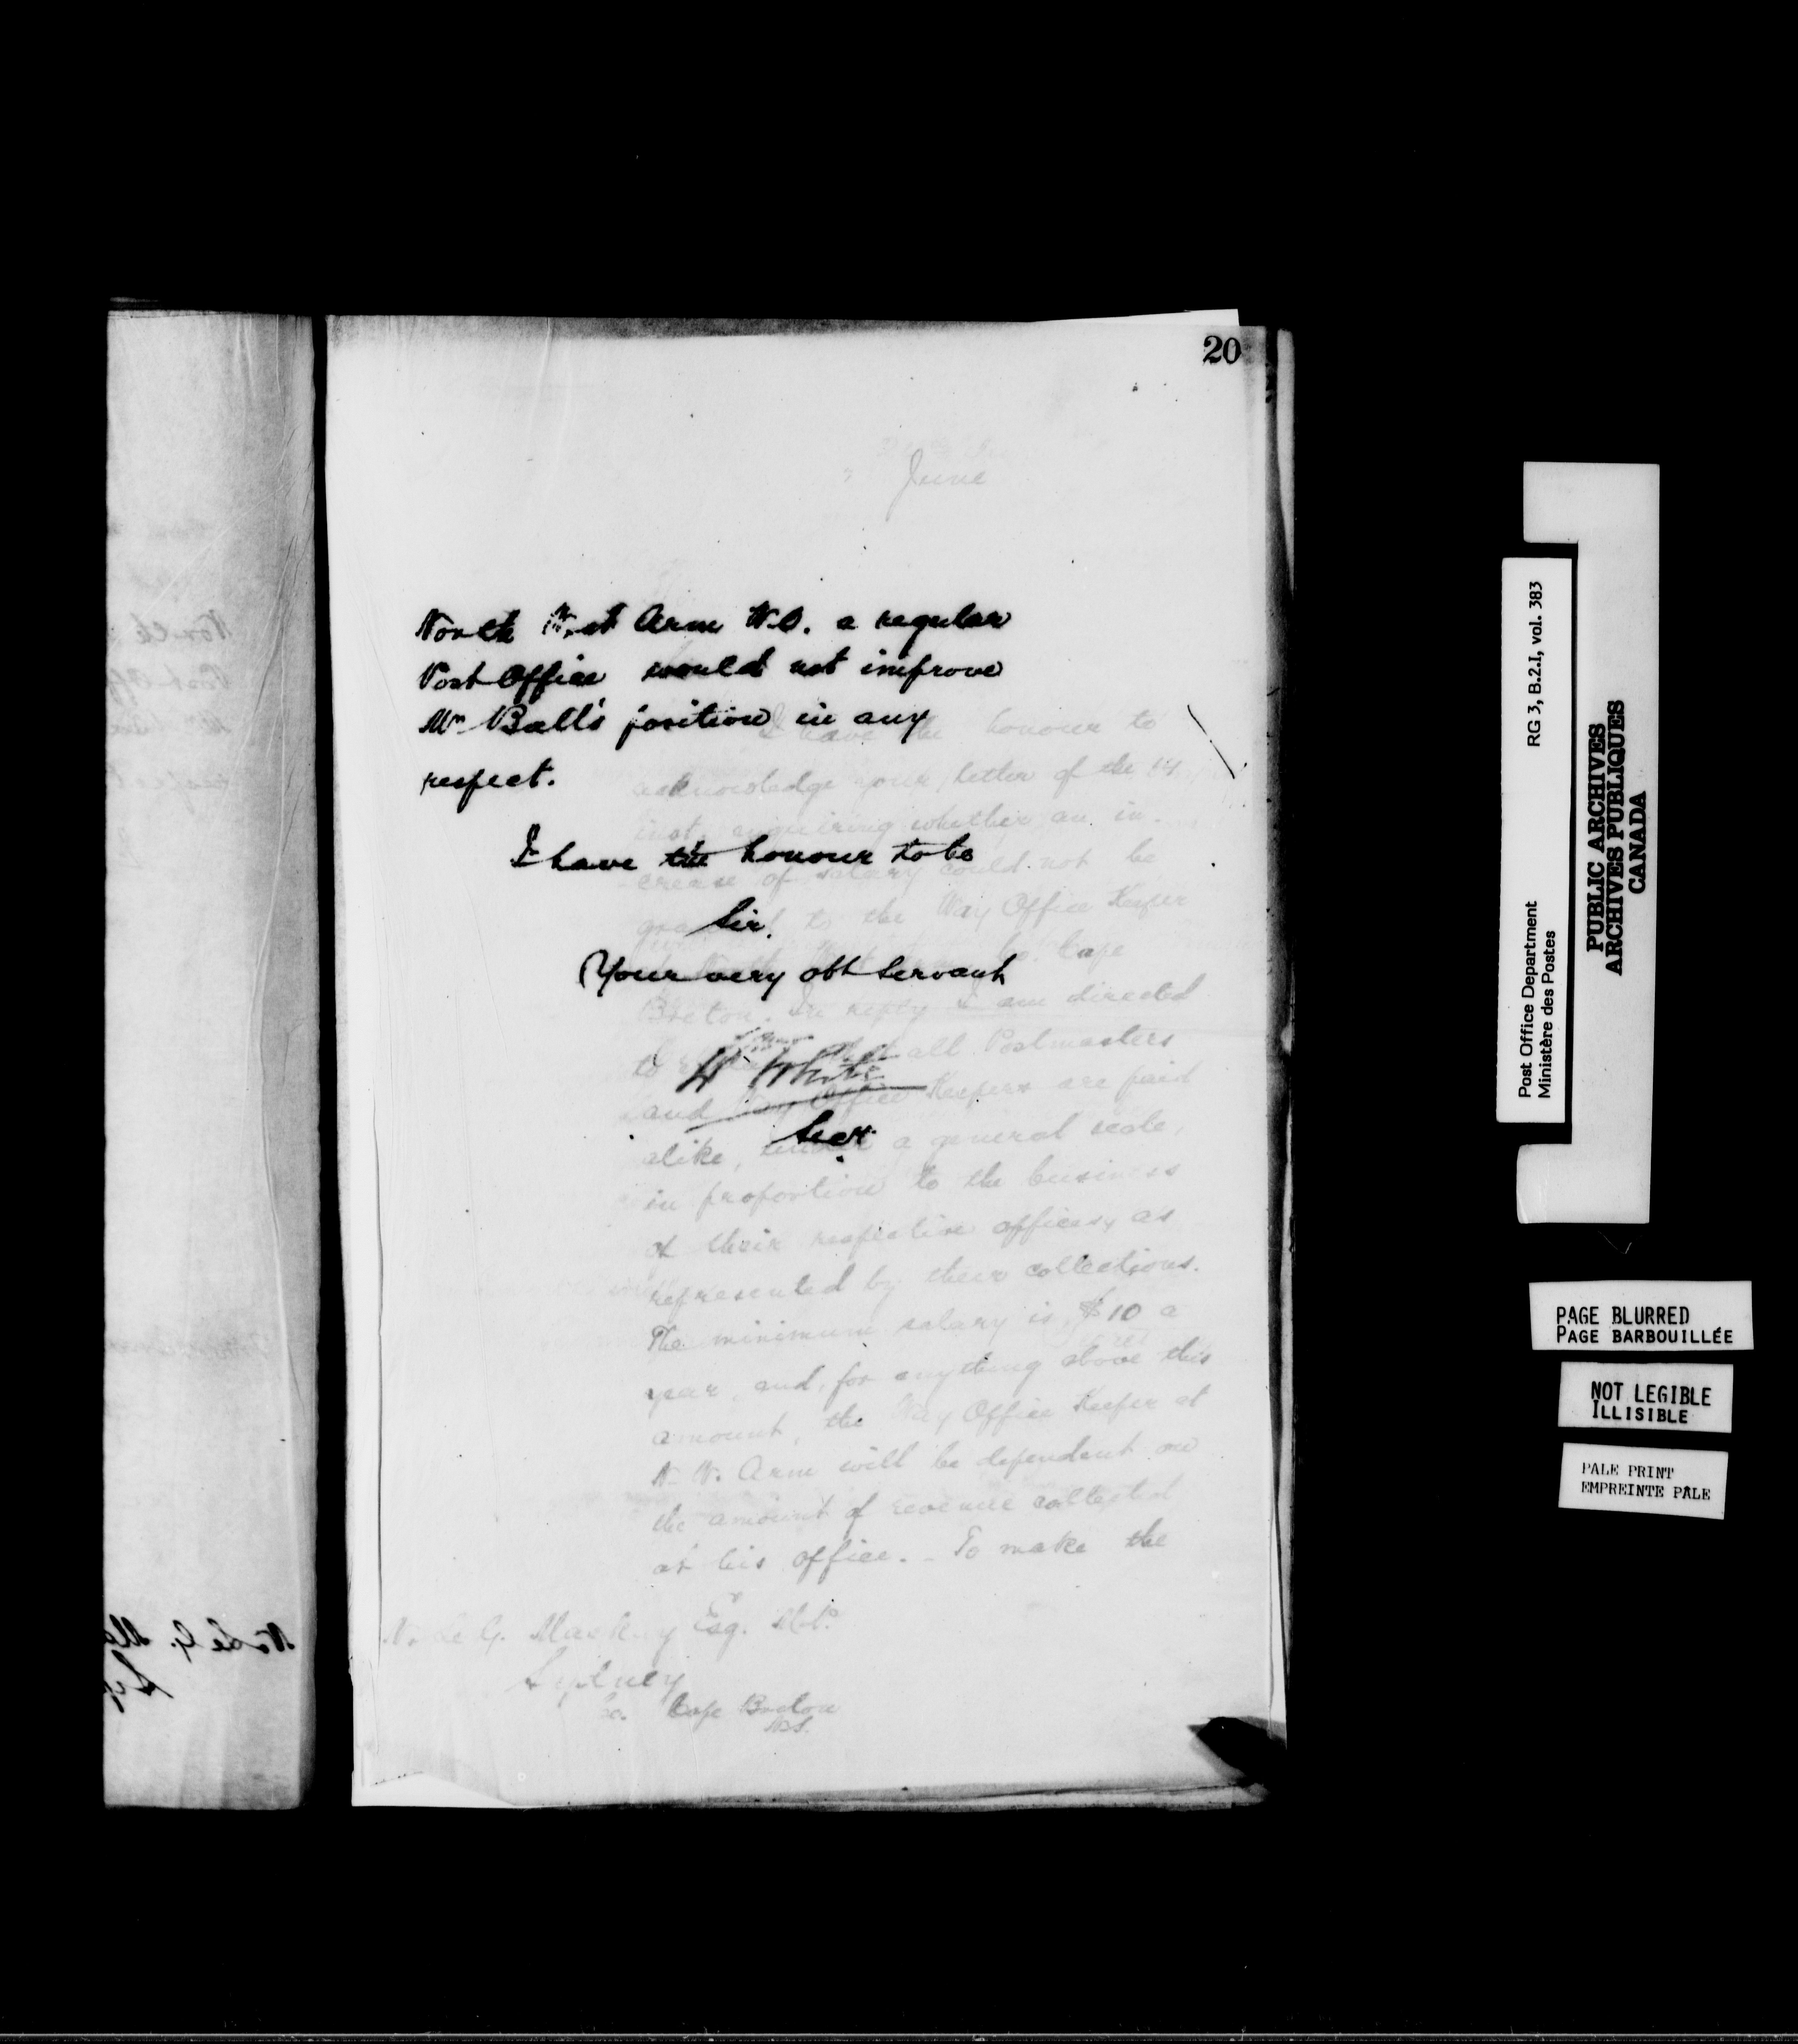 20
June
North West Arm W.O. a regular
Post Office would not improve
Mr Ball's position in any
respect.
I have the honour to be
Sir,
Your very obt servant
W White
Secy.
I have the honour to
acknowledge your letter of the
inst. enquiring whether an in-
crease of salary could not be
granted to the Way Office Keeper
Cape
Breton. In reply I am directed
to all Postmasters
and Way Office Keepers are paid
alike, under a general scale,
in proportion to the business
of their respective offices, as
represented by their collections.
The minimum salary is $10 a
year, and, for anything above this
amount, the Way Office Keeper at
N. W. Arm will be dependent on
the amount of revenue collected
at his office. - To make the
N. Le G. Esq. M.P.
Sydney
Co. Cape Breton
N.S.
Post Office Department RG 3, B.2.I, vol. 383
Ministère des Postes
PUBLIC ARCHIVES
ARCHIVES PUBLIQUES
CANADA
PAGE BLURRED
PAGE BARBOUILLÉE
NOT LEGIBLE
ILLISIBLE
PALE PRINT
EMPREINTE PALE